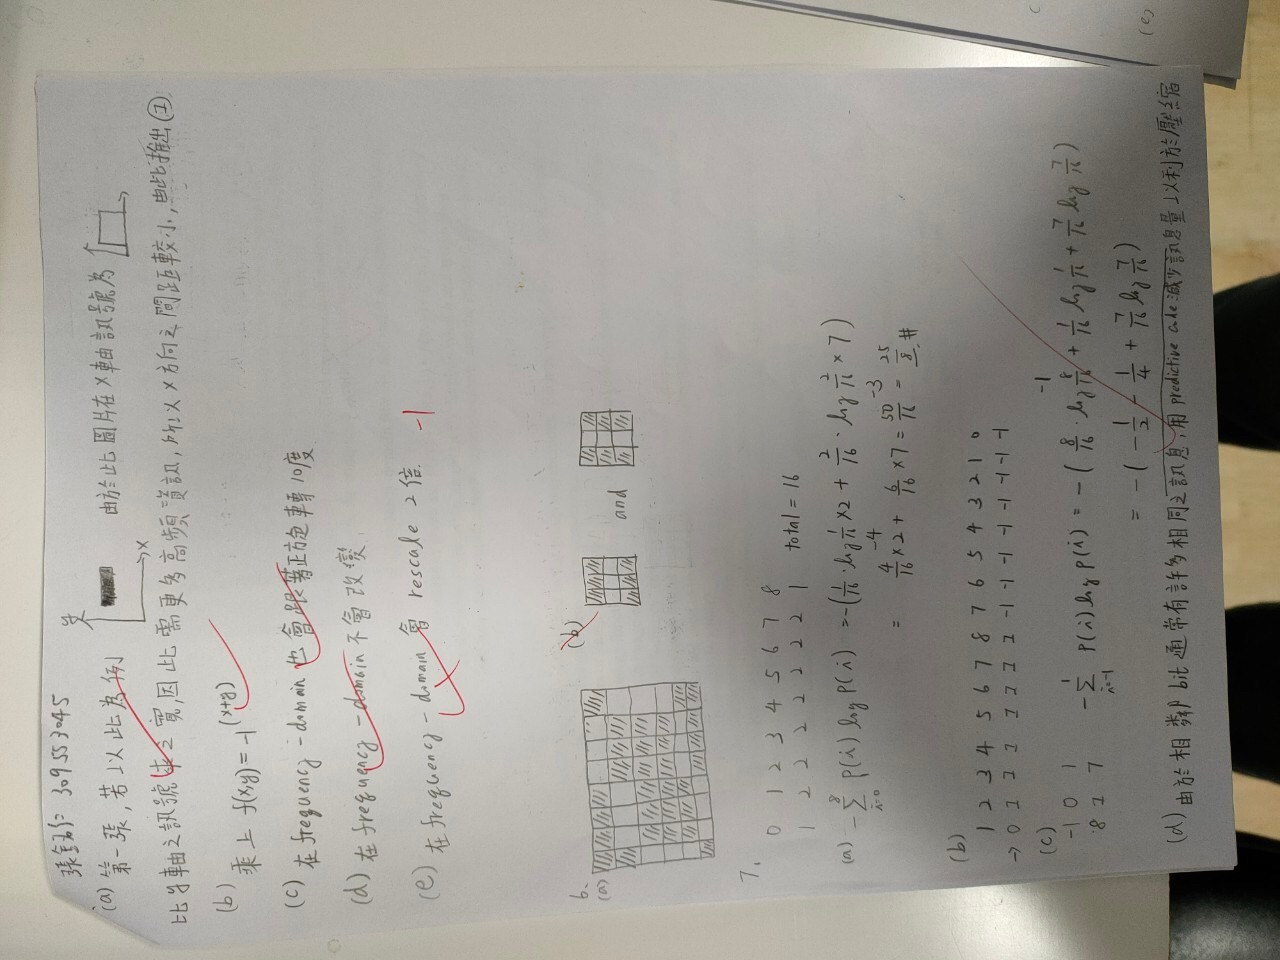 309553045
(a) 第一張,若以此為例 y x 由於此圖片在X軸訊號為
比y軸之訊號來之寬,因此需更多高頻資訊,所以X方向之間距較小,由此推出①
(b) 乘上 f(x,y) = -1^(x+y)
(c) 在frequency-domain也會跟著正旋轉10度
(d) 在frequency-domain不會改變.
(e) 在frequency-domain會 rescale 2倍. -1
6.
(a) (b) and
7.
0 1 2 3 4 5 6 7 8
1 2 2 2 2 2 2 2 1 total = 16
(a) -∑_{i=0}^{8} P(i) log P(i) = -(1/16 · log 1/16 ×2 + 2/16 · log 2/16 × 7)
-4 -3
= 4/16 ×2 + 6/16 ×7 = 50/16 = 25/8 #
(b)
1 2 3 4 5 6 7 8 7 6 5 4 3 2 1 0
→ 0 1 1 1 1 1 1 1 -1 -1 -1 -1 -1 -1 -1 -1
(c)
-1 0 1
8 1 7 -∑_{i=-1}^{1} P(i) log P(i) = -( 8/16 · log 8/16 + 1/16 log 1/16 + 7/16 log 7/16 )
-1
= -( -1/2 - 1/4 + 7/16 log 7/16 )
(d) 由於相鄰 bit 通常有許多相同之訊息,用 predictive code 減少訊息量以利於壓縮